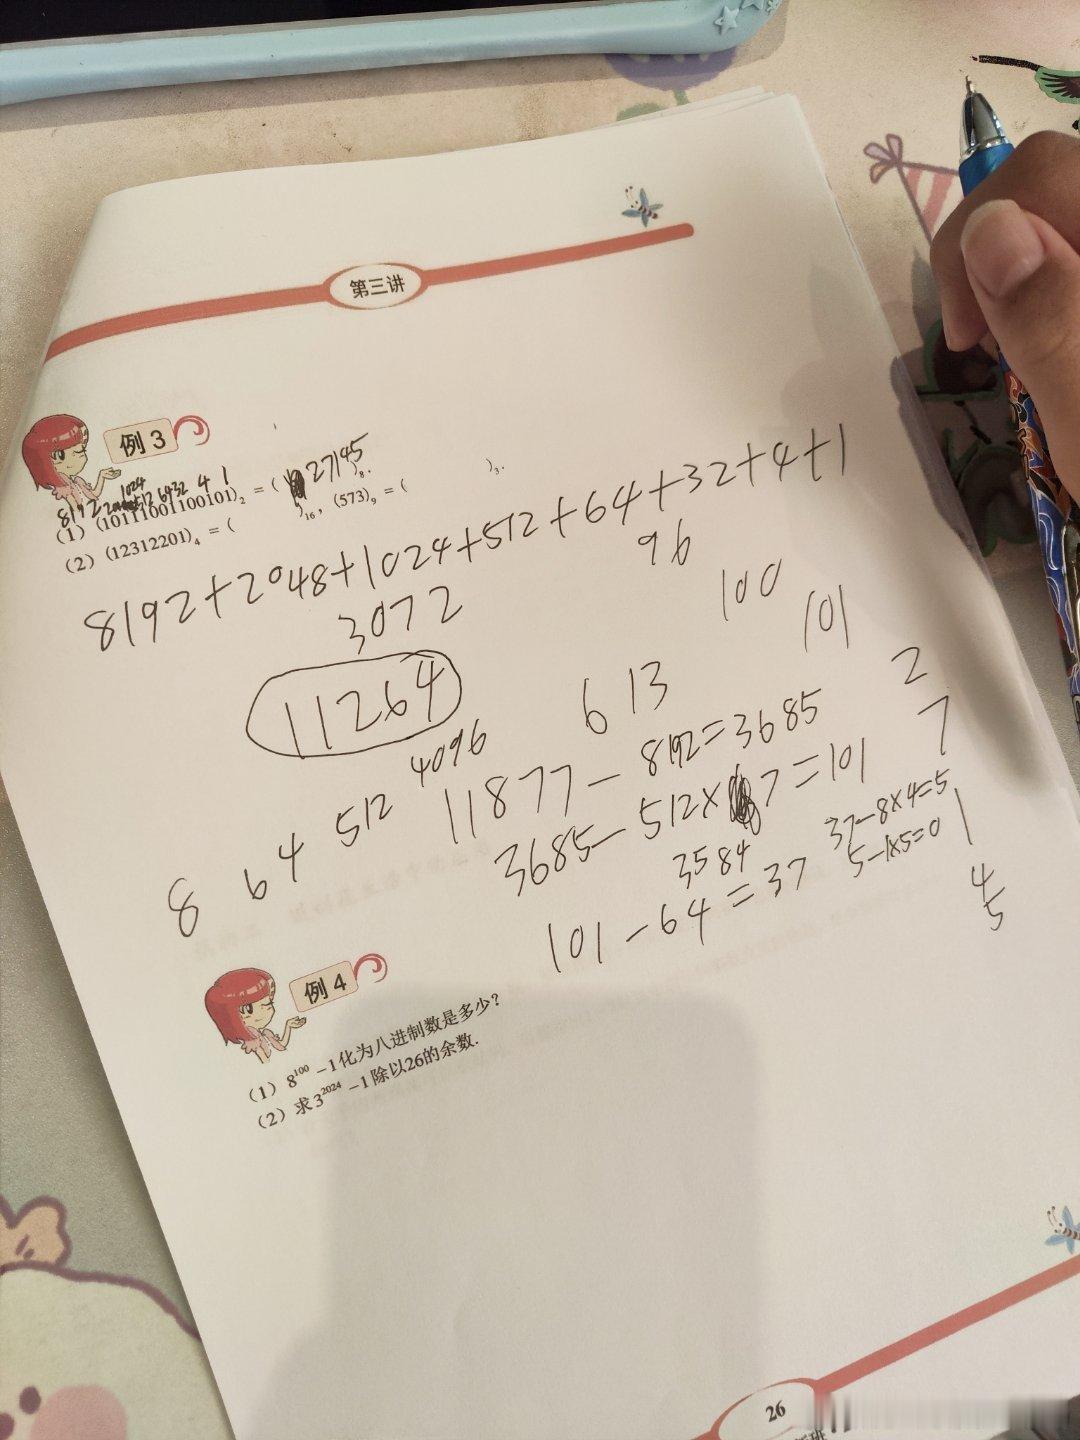 第三讲
例3
1024
8192 2048 512 64 32 4 1
(1) (10111001100101)₂ = ( 27145 )₈.
(2) (12312201)₄ = ( )₁₆, (573)₉ = ( )₃.
8192+2048+1024+512+64+32+4+1
3072 96
100
101
11264 613
2
4096 11877-8192=3685
7
8 64 512 3685-512×7=101
3584 37-8×4=5
5-1×5=0
1
101-64=37
4
5
例4
(1) 8¹⁰⁰-1化为八进制数是多少?
(2) 求3²⁰²⁴-1除以26的余数.
26